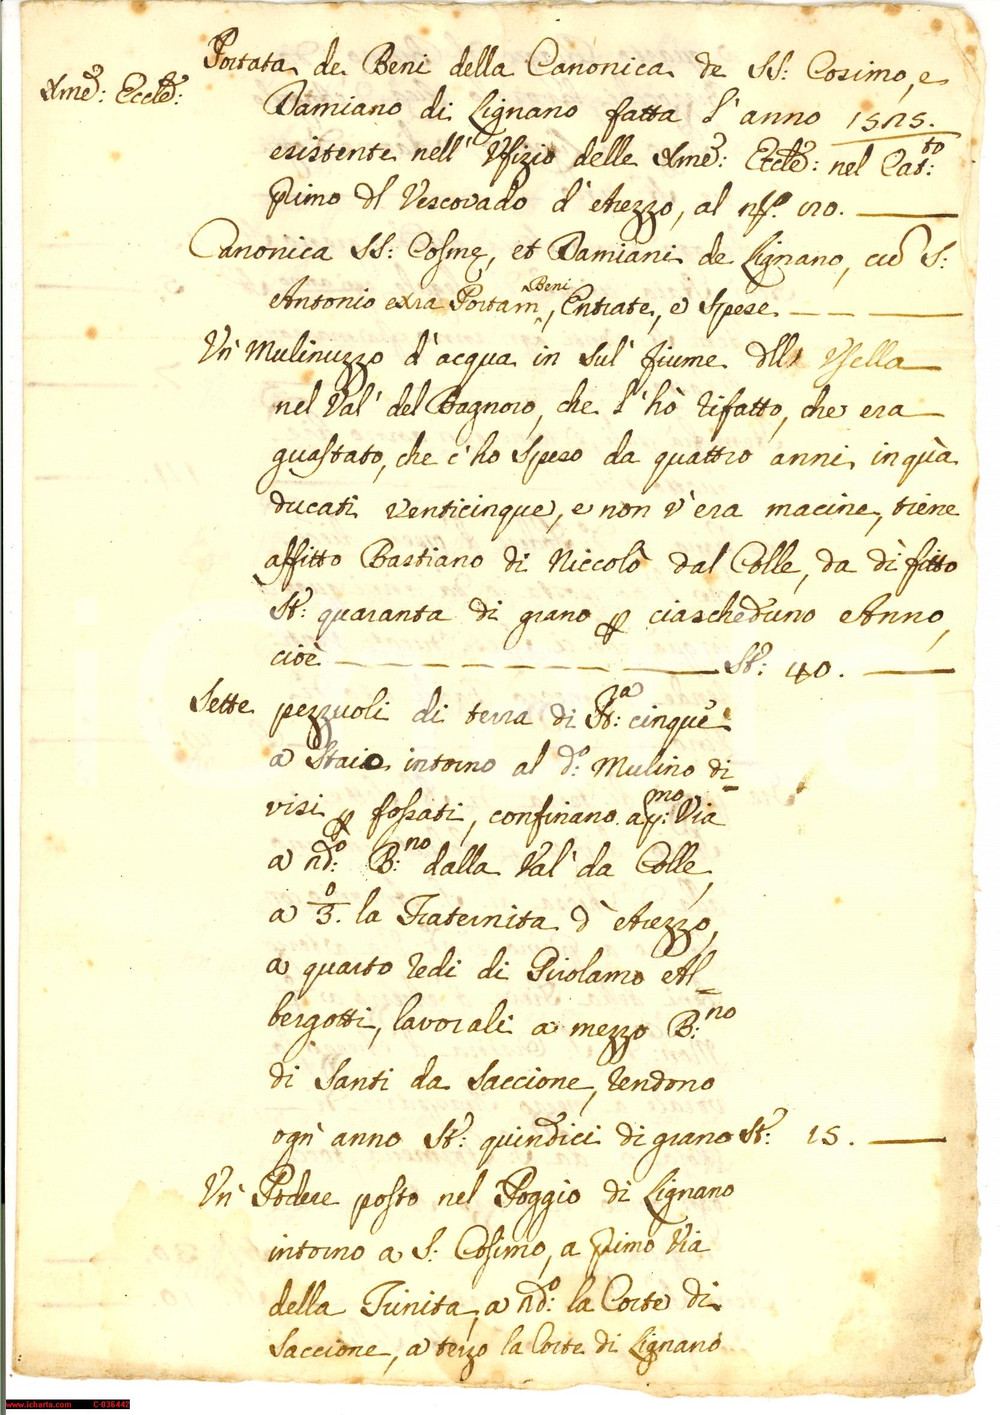 Portata de Beni della Canonica de SS: Cosimo, e
Xme: Eccle:
Damiano di Lignano fatta l'anno 1525.
esistente nell' Ufizio delle Xme: Eccle: nel Cat:to
Primo dl Vescovado d' Arezzo, al nº. 120.
Canonica SS: Cosme, et Damiani de Lignano, cio S:
Antonio extra Portam, Beni, Entrate, e Spese
Un' Mulinuzzo d'acqua in sul' fiume dll' Vsella
nel Val' del Bagnoro, che l'hò rifatto, che era
guastato, che c'ho speso da quattro anni in quà
ducati venticinque, e non v'era macine, tiene
affitto Bastiano di Niccolò dal Colle, da di fitto
St: quaranta di grano p ciascheduno Anno,
cioè St: 40.
Sette pezzuoli di terra di St:a cinque
a Staio intorno al do: Mulino di-
visi p fossati, confinano a p:mo Via
a 2do: B:no dalla Val' da Colle,
a 3.o la Fraternita d' Arezzo,
a quarto redi di Girolamo Al-
bergotti, lavorali a mezzo B:no
di Santi da Saccione, rendono
ogn' anno St: quindici di grano St: 15.
Un' Podere posto nel Poggio di Lignano
intorno a S: Cosimo, a primo Via
della Trinita, a 2do: la Corte di
Saccione, a terzo la Corte di Lignano
www.icharta.com C-036442